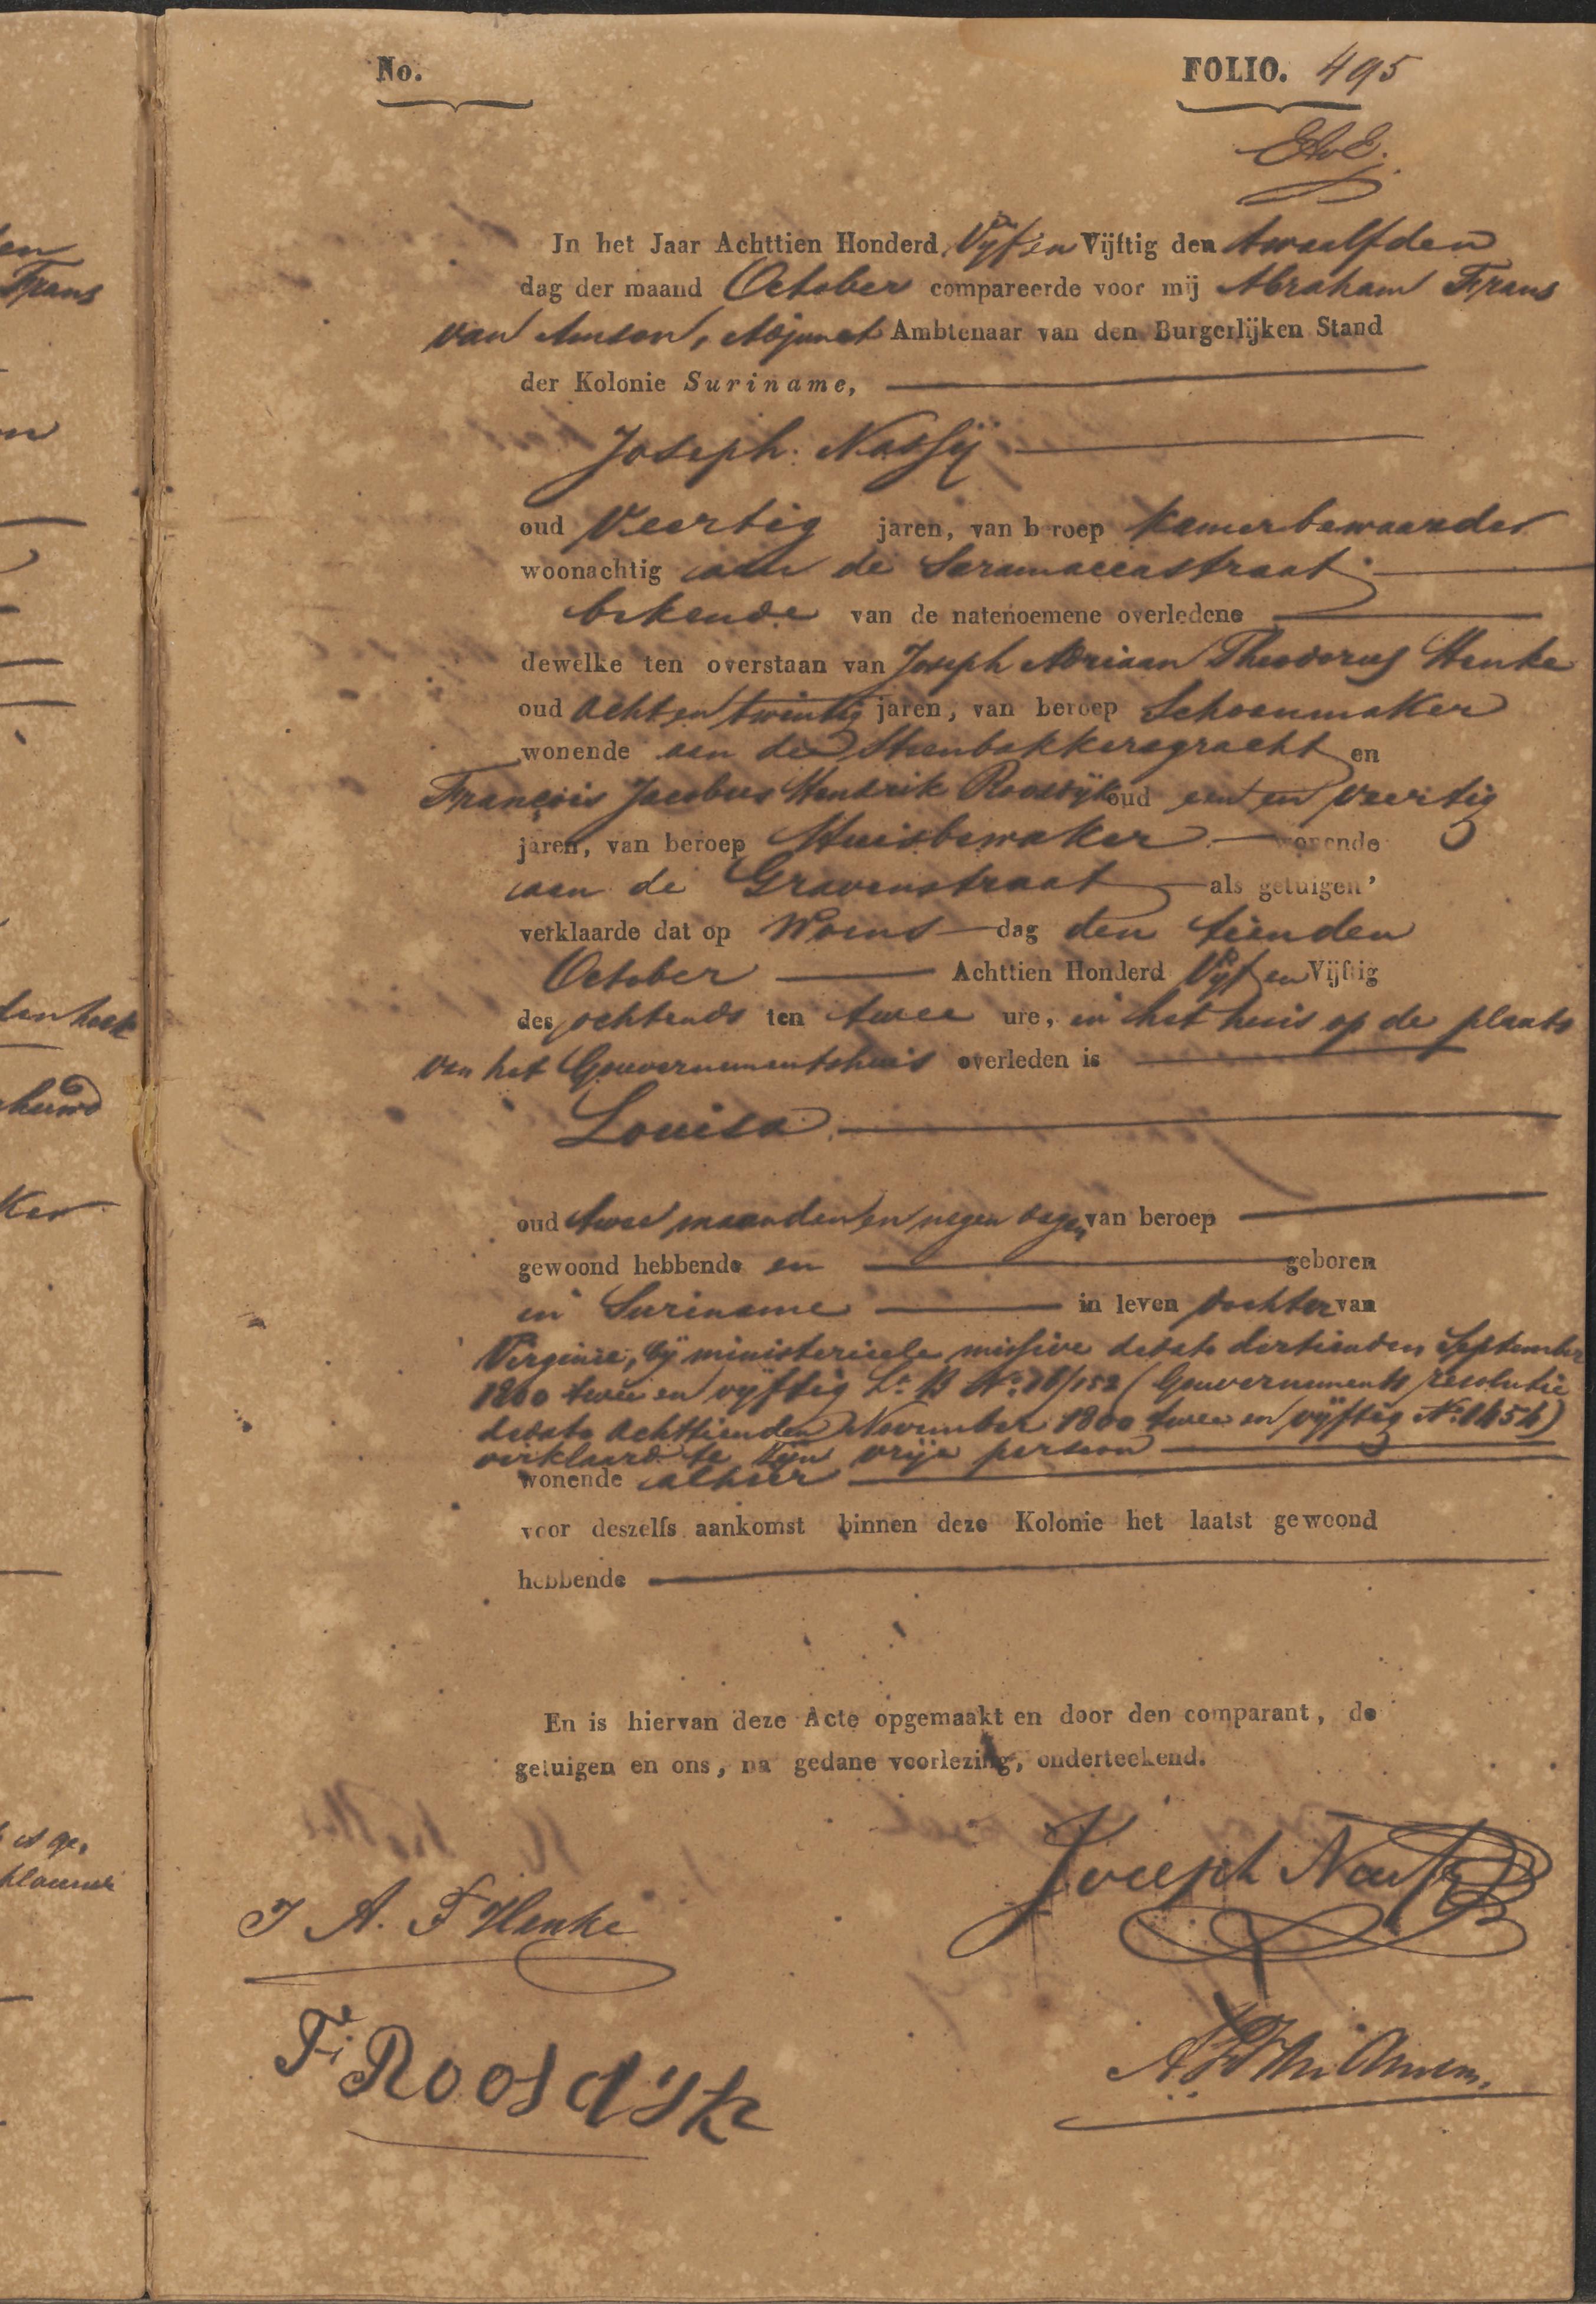 No.
FOLIO. 495
In het Jaar Achttien Honderd Vyf en Vijftig den twaalfden
dag der maand October compareerde voor mij Abraham Frans
van Amson, Adjunct Ambtenaar van den Burgerlijken Stand
der Kolonie Suriname,
Joseph Nassij
oud Veertig jaren, van beroep Kamerbewaarder
woonachtig aan de Saramaccastraat
bekende van de natenoemene overledene
dewelke ten overstaan van Joseph Adriaan Theodorus Henke
oud acht en twintig jaren, van beroep Schoenmaker
wonende aan de Steenbakkersgracht en
François Jacobus Hendrik Roosdijk oud een en veertig
jaren, van beroep Huisbewaker wonende
aan de Gravenstraat als getuigen,
verklaarde dat op Woens dag den tienden
October Achttien Honderd Vyf en Vijftig
des ochtends ten twee ure, in het huis op de plaats
van het Gouvernementshuis overleden is
Louisa
oud twee maanden en negen dagen van beroep
gewoond hebbende en geboren
in Suriname in leven dochter van
Virginie, by ministerieele missive dedato dertienden September
1800 twee en vyftig La B No. 18/152 (Gouvernements resolutie
dedato achttienden November 1800 twee en vyftig No. 1454)
verklaard te zyn vrije persoon
wonende alhier
voor deszelfs aankomst binnen deze Kolonie het laatst gewoond
hebbende
En is hiervan deze Acte opgemaakt en door den comparant, de
getuigen en ons, na gedane voorlezing, onderteekend.
Joseph Nassy
J A. T Henke
F. Roosdyk